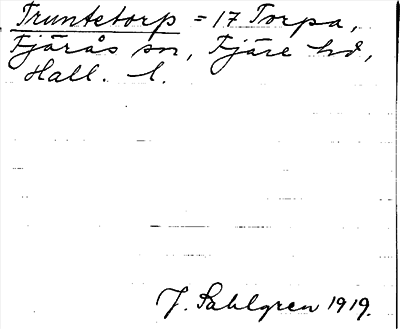 Truntetorp = 17 Torpa,
Fjärås sn, Fjäre hd,
Hall. l.
J. Sahlgren 1919.